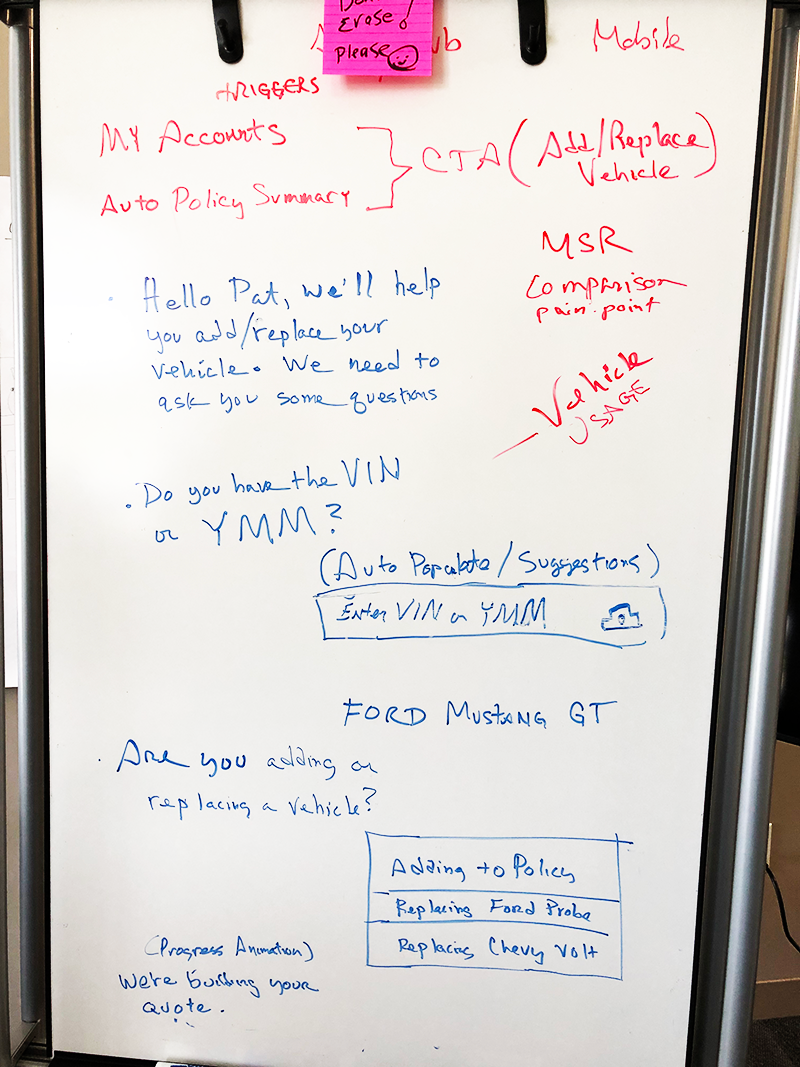 Erase!
please
Mobile
TRIGGERS
My Accounts
Auto Policy Summary
CTA (Add/Replace
Vehicle)
MSR
Comparison
pain point
Vehicle
USAGE
Hello Pat, we'll help
you add/replace your
vehicle. We need to
ask you some questions
Do you have the VIN
or YMM?
(Auto Populate/Suggestions)
Enter VIN or YMM
FORD MUSTANG GT
Are you adding or
replacing a vehicle?
Adding to Policy
Replacing Ford Probe
Replacing Chevy Volt
(Progress Animation)
We're building your
quote.